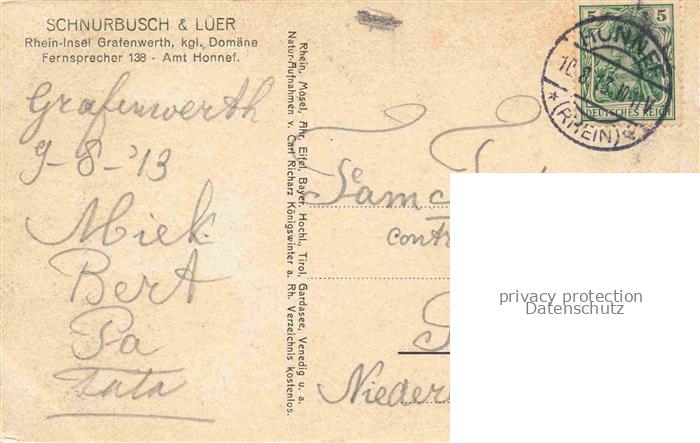 SCHNURBUSCH & LÜER
Rhein-Insel Grafenwerth, kgl. Domäne
Fernsprecher 138 - Amt Honnef.
Grafenwerth
9-8-'13
Miek
Bert
Pa
Tata
Rhein, Mosel, Ahr, Eifel, Bayer. Hochl., Tirol, Gardasee, Venedig u. a.
Natur-Aufnahmen v. Carl Richarz Königswinter a. Rh. Verzeichnis kostenlos.
5 5
DEUTSCHES REICH
HONNEF
10.8.13.
(RHEIN)
privacy protection
Datenschutz